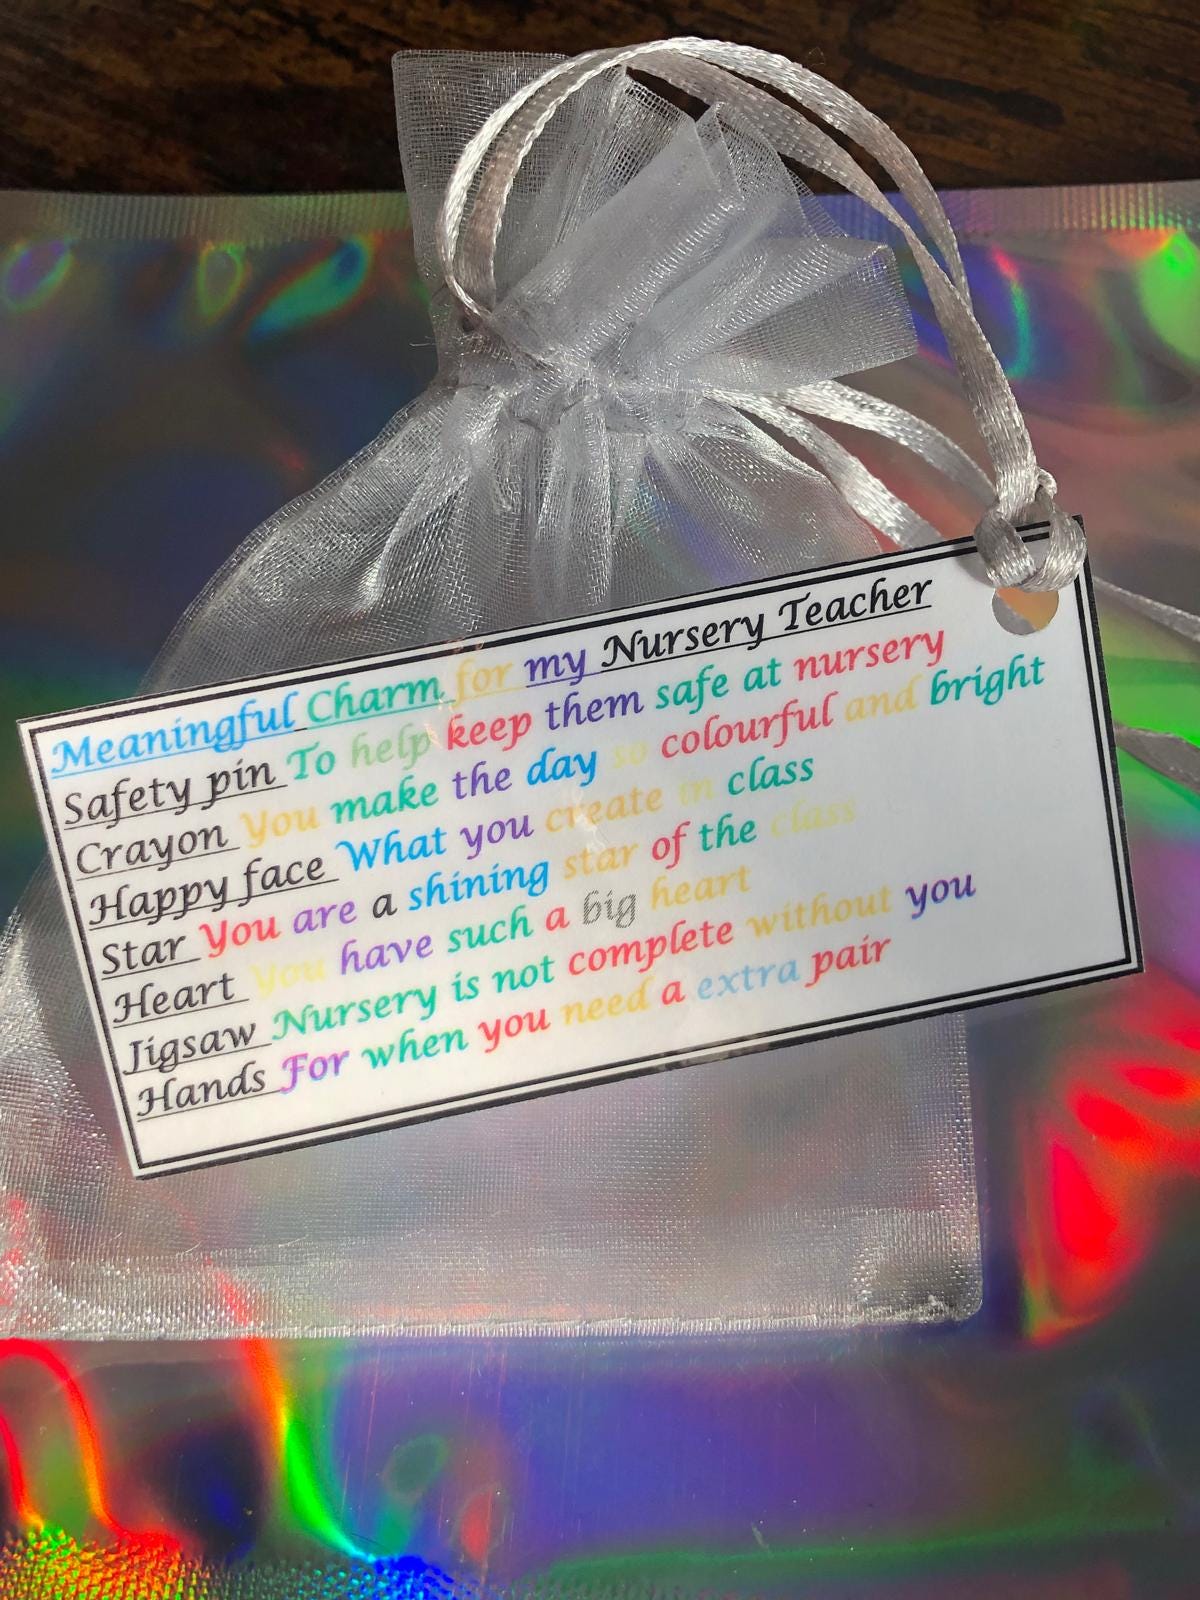 Meaningful Charm for my Nursery Teacher
Safety pin To help keep them safe at nursery
Crayon You make the day so colourful and bright
Happy face What you create in class
Star You are a shining star of the class
Heart You have such a big heart
Jigsaw Nursery is not complete without you
Hands For when you need a extra pair